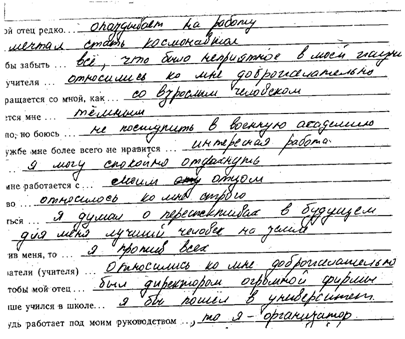 ой отец редко... опаздывает на работу
мечтал стать космонавтом
бы забыть... всё, что было неприятное в моей жизни
учителя... относились ко мне доброжелательно
ращается со мной, как... со взрослым человеком
ется мне... тёмным
но; но боюсь... не поступить в военную академию
ужбе мне более всего не нравится... интересная работа
... я могу спокойно отдохнуть
мне работается с... моим отцом
во... относилось ко мне строго
ться... я думал о перспективах в будущем
для меня лучший человек на
ив меня, то... я против всех
ватели (учителя)... относились ко мне доброжелательно
тобы мой отец... был директором огромной фирмы
ше учился в школе... я бы пошёл в университет.
удь работает под моим руководством..., то я - организатор.